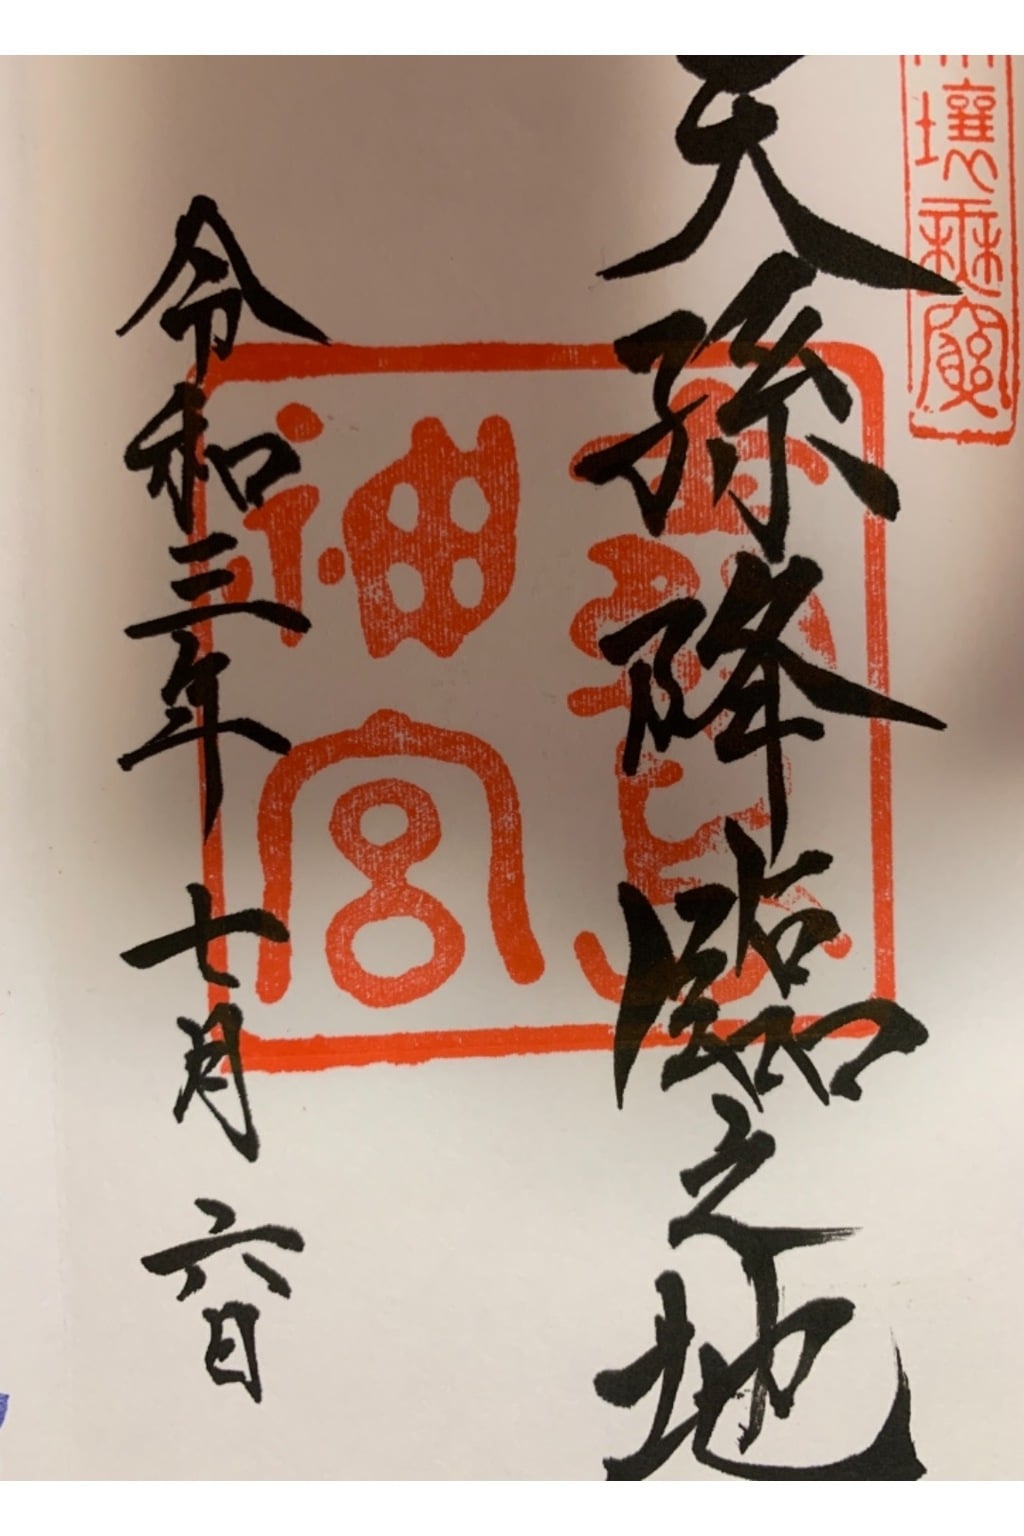 壤無窮
天孫降臨之地
神宮
令和三年七月六日